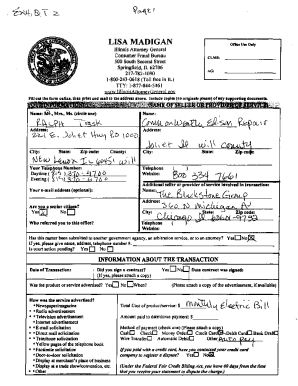 Exhibit 2 Page 1
LISA MADIGAN
Illinois Attorney General
Consumer Fraud Bureau
500 South Second Street
Springfield, IL 62706
217-782-1090
1-800-243-0618 (Toll free in IL)
TTY: 1-877-844-5461
www.IllinoisAttorneyGeneral.gov
Office Use Only
CLMR:
AG:
Fill out the form online, then print and send to the address above. Include copies (no originals please) of any supporting documents.
YOUR INFORMATION NAME OF SELLER OR PROVIDER OF SERVICE
Name: Mr., Mrs., Ms. (circle one) Name:
Commonwealth Edison Repair
Address: Address:
Joliet Il will County
City: State: County: City: State: Zip code:
New Lenox Il will
Your Telephone Number: Telephone
Daytime: Website: 800 334 7661
Evening:
Your e-mail address (optional): Additional seller or provider of service involved in transaction:
Name: The Blackstone Group
Address: 360 N Michigan Av
Are you a senior citizen? City: State: Zip code:
Yes No Chicago Il
Who referred you to this office? Telephone
Website:
Has this matter been submitted to another government agency, an arbitration service, or to an attorney? Yes No
If yes, please give name, address, telephone number.
Is court action pending? Yes No
INFORMATION ABOUT THE TRANSACTION
Date of Transaction: Did you sign a contract? Yes No Date contract was signed:
(If yes, please attach a copy)
Was the product or service advertised? Yes No When? (Please attach a copy of the advertisement, if available)
How was the service advertised? Total Cost of product/service: $ monthly Electric Bill
• Newspaper/magazine
• Radio advertisement
• Television advertisement Amount paid to date/down payment: $
• Internet advertisement
• E-mail solicitation Method of payment (check one) (Please attach a copy)
• Direct mail solicitation Cash Check Money Order Credit Card Debit Card Bank Draft
• Telephone solicitation Wire Transfer Automatic Debit Other Auto Pay
• Yellow pages of the telephone book
• Facsimile solicitation If you paid with a credit card, have you contacted your credit card
• Door-to-door solicitation company to dispute the charge?
• Display at merchant's place of business Yes No
• Display at a trade show/convention, etc. (Under the Federal Fair Credit Billing Act, you have 60 days from the time
• Other that you receive your statement to dispute the charge.)